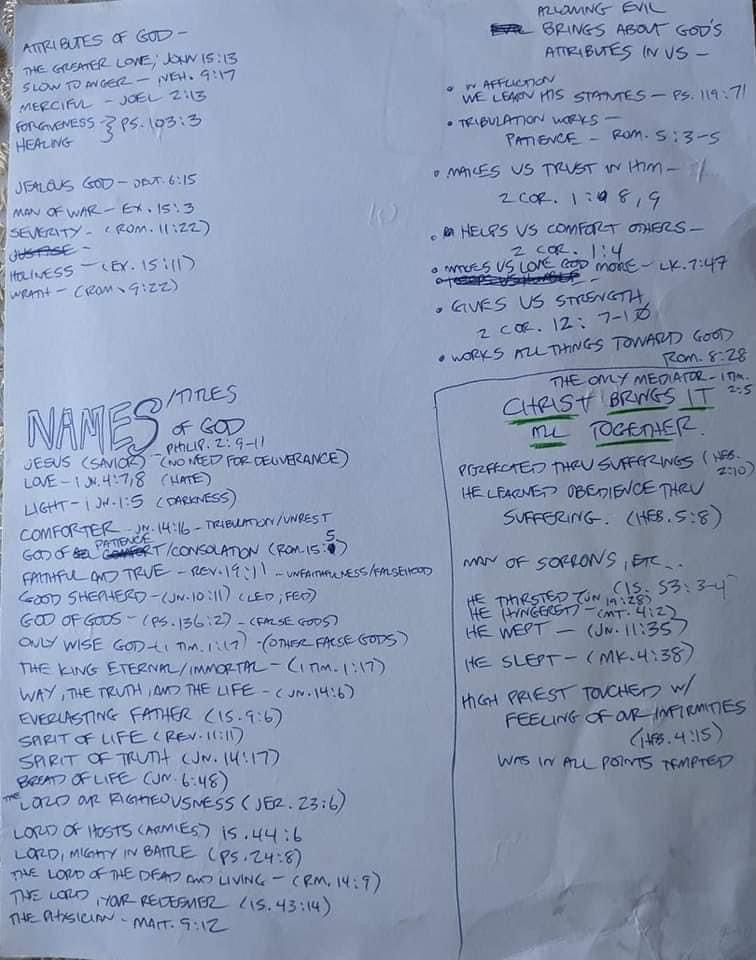 ATTRIBUTES OF GOD -
THE GREATER LOVE; JOHN 15:13
SLOW TO ANGER - NEH. 9:17
MERCIFUL - JOEL 2:13
FORGIVENESS } PS. 103:3
HEALING
JEALOUS GOD - DEUT. 6:15
MAN OF WAR - EX. 15:3
SEVERITY - (ROM. 11:22)
JUSTISE -
HOLINESS - (EX. 15:11)
WRATH - (ROM. 9:22)
ALLOWING EVIL
BRINGS ABOUT GOD'S
ATTRIBUTES IN US -
• IN AFFLICTION
WE LEARN HIS STATUTES - PS. 119:71
• TRIBULATION WORKS -
PATIENCE - ROM. 5:3-5
• MAKES US TRUST IN HIM -
2 COR. 1: 8,9
• HELPS US COMFORT OTHERS -
2 COR. 1:4
• MAKES US LOVE GOD MORE - LK. 7:47
• GIVES US STRENGTH,
2 COR. 12: 7-10
• WORKS ALL THINGS TOWARD GOOD
ROM. 8:28
NAMES/TITLES
OF GOD
PHILIP. 2:9-11
JESUS (SAVIOR) - (NO NEED FOR DELIVERANCE)
LOVE - 1 JN. 4:7,8 (HATE)
LIGHT - 1 JN. 1:5 (DARKNESS)
COMFORTER - JN. 14:16 - TRIBULATION/UNREST
GOD OF PATIENCE COMFORT/CONSOLATION (ROM. 15:5)
FAITHFUL AND TRUE - REV. 19:11 - UNFAITHFULNESS/FALSEHOOD
GOOD SHEPHERD - (JN. 10:11) (LED; FED)
GOD OF GODS - (PS. 136:2) - (FALSE GODS)
ONLY WISE GOD - (1 TIM. 1:17) - (OTHER FALSE GODS)
THE KING ETERNAL/IMMORTAL - (1 TIM. 1:17)
WAY, THE TRUTH, AND THE LIFE - (JN. 14:6)
EVERLASTING FATHER (IS. 9:6)
SPIRIT OF LIFE (REV. 11:11)
SPIRIT OF TRUTH (JN. 14:17)
BREAD OF LIFE (JN. 6:48)
THE LORD OUR RIGHTEOUSNESS (JER. 23:6)
LORD OF HOSTS (ARMIES) IS. 44:6
LORD, MIGHTY IN BATTLE (PS. 24:8)
THE LORD OF THE DEAD AND LIVING - (RM. 14:9)
THE LORD, YOUR REDEEMER (IS. 43:14)
THE PHYSICIAN - MATT. 9:12
THE ONLY MEDIATOR - 1 TIM. 2:5
CHRIST BRINGS IT
ALL TOGETHER.
PERFECTED THRU SUFFERINGS (HEB. 2:10)
HE LEARNED OBEDIENCE THRU
SUFFERING. (HEB. 5:8)
MAN OF SORRONS, ETC...
(IS. 53:3-4)
HE THIRSTED - (JN 19:28)
HE HUNGERED - (MT. 4:2)
HE WEPT - (JN. 11:35)
HE SLEPT - (MK. 4:38)
HIGH PRIEST TOUCHED W/
FEELING OF OUR INFIRMITIES
(HEB. 4:15)
WAS IN ALL POINTS TEMPTED